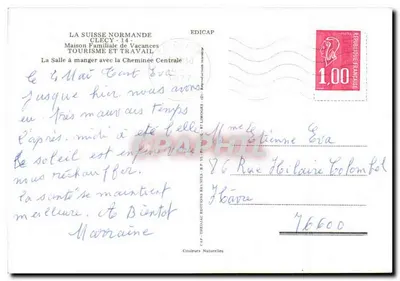 LA SUISSE NORMANDE
CLECY - 14 -
Maison Familiale de Vacances
TOURISME ET TRAVAIL
La Salle à manger avec la Cheminée Centrale
EDICAP
REPUBLIQUE FRANCAISE
1,00
Le 4 Mai Tout Eva
Jusque hier nous avons
eu très mauvais temps
L'après-midi a été belle
le soleil est
nous réchauffer.
la santé se maintient
meilleure. A Bientôt
Marraine
Mme Etienne Eva
86 Rue Hilaire Colombel
Havre
76600
Couleurs Naturelles